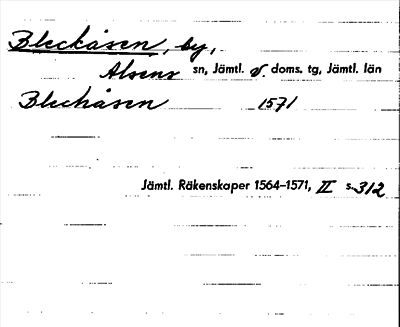 Bleckåsen, by,
Alsens sn, Jämtl. v. doms. tg, Jämtl. län
Bleckåsen 1571
Jämtl. Räkenskaper 1564–1571, II s. 312